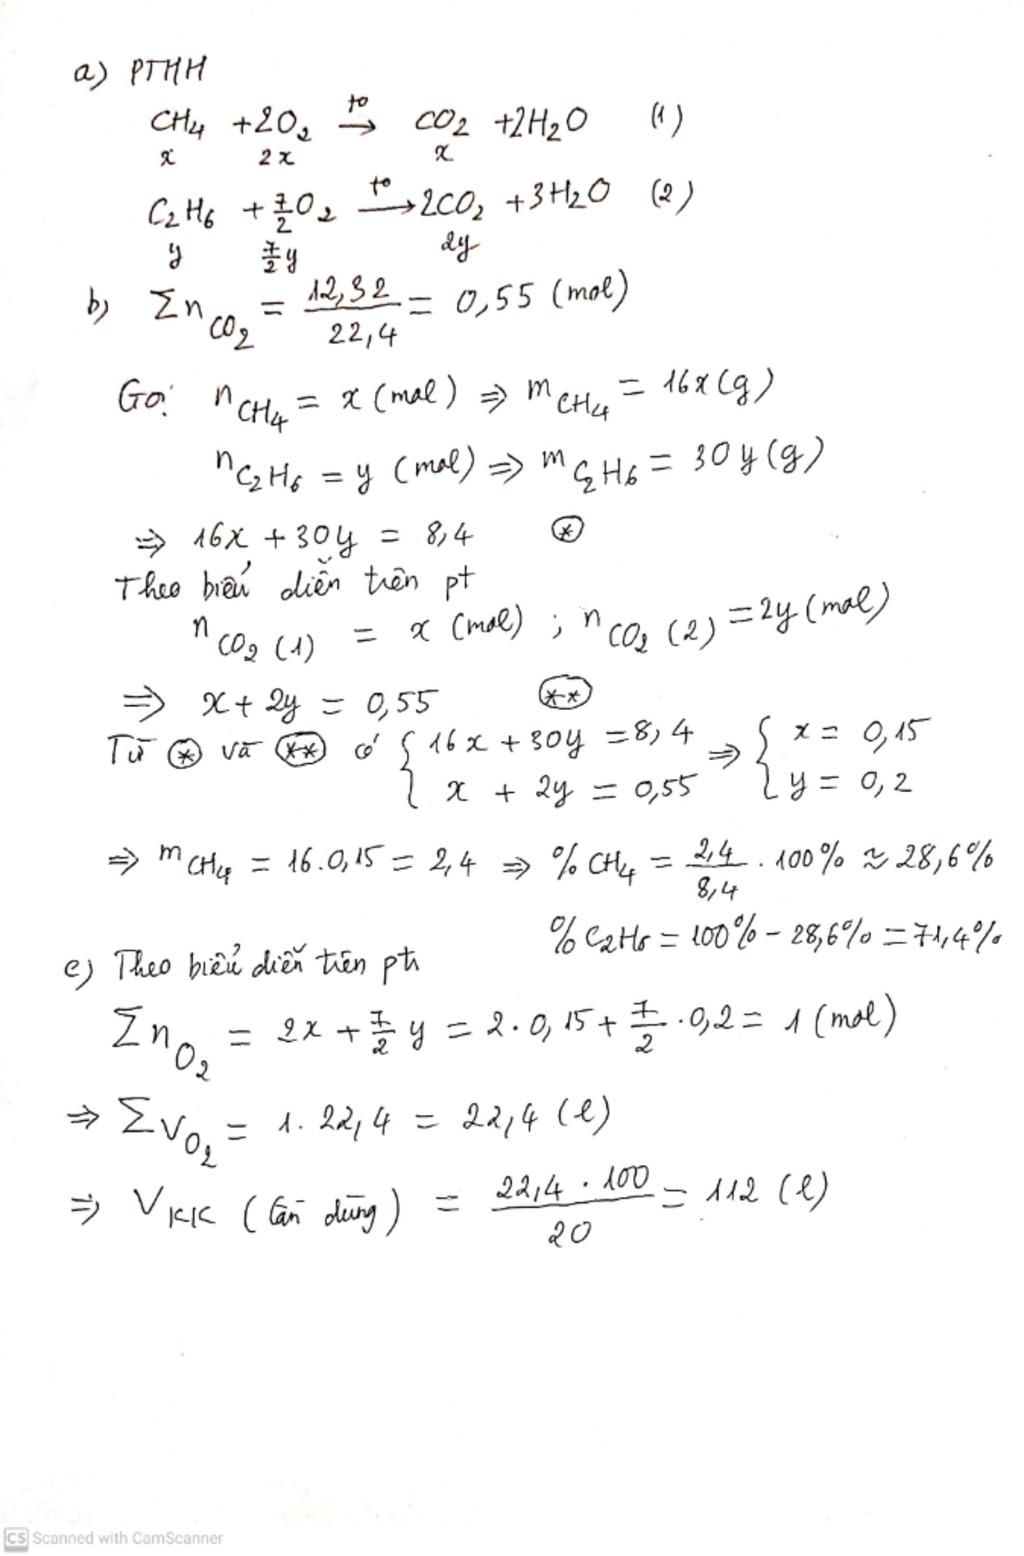 a) PTHH
CH4 + 2O2 t° → CO2 + 2H2O (1)
x 2x x
C2H6 + 7/2 O2 t° → 2CO2 + 3H2O (2)
y 7/2 y 2y
b) Σn CO2 = 12,32 / 22,4 = 0,55 (mol)
Gọi n CH4 = x (mol) ⇒ m CH4 = 16x (g)
n C2H6 = y (mol) ⇒ m C2H6 = 30y (g)
⇒ 16x + 30y = 8,4 (*)
Theo biểu diễn trên pt
n CO2 (1) = x (mol) ; n CO2 (2) = 2y (mol)
⇒ x + 2y = 0,55 (**)
Từ (*) và (**) có { 16x + 30y = 8,4 ⇒ { x = 0,15
x + 2y = 0,55 y = 0,2
⇒ m CH4 = 16.0,15 = 2,4 ⇒ % CH4 = 2,4 / 8,4 . 100% ≈ 28,6%
% C2H6 = 100% - 28,6% = 71,4%
c) Theo biểu diễn trên pth
Σn O2 = 2x + 7/2 y = 2.0,15 + 7/2 .0,2 = 1 (mol)
⇒ ΣV O2 = 1. 22,4 = 22,4 (l)
⇒ V KK (Cần dùng) = 22,4 . 100 / 20 = 112 (l)
CS Scanned with CamScanner